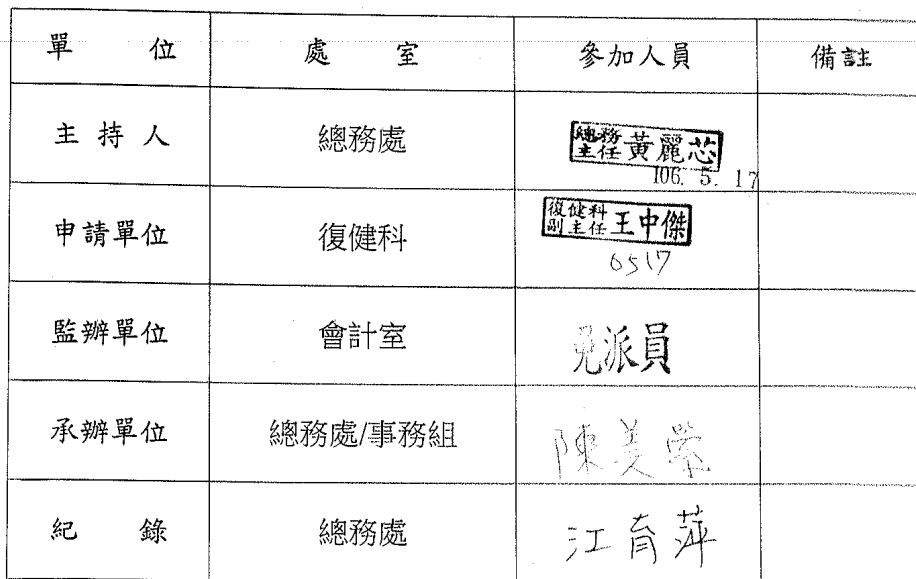 單 位 處 室 參加人員 備註
主持人 總務處 總務主任 黃麗芯
106. 5. 17
申請單位 復健科 復健科副主任 王中傑
0517
監辦單位 會計室 免派員
承辦單位 總務處/事務組 陳美榮
紀 錄 總務處 江育萍